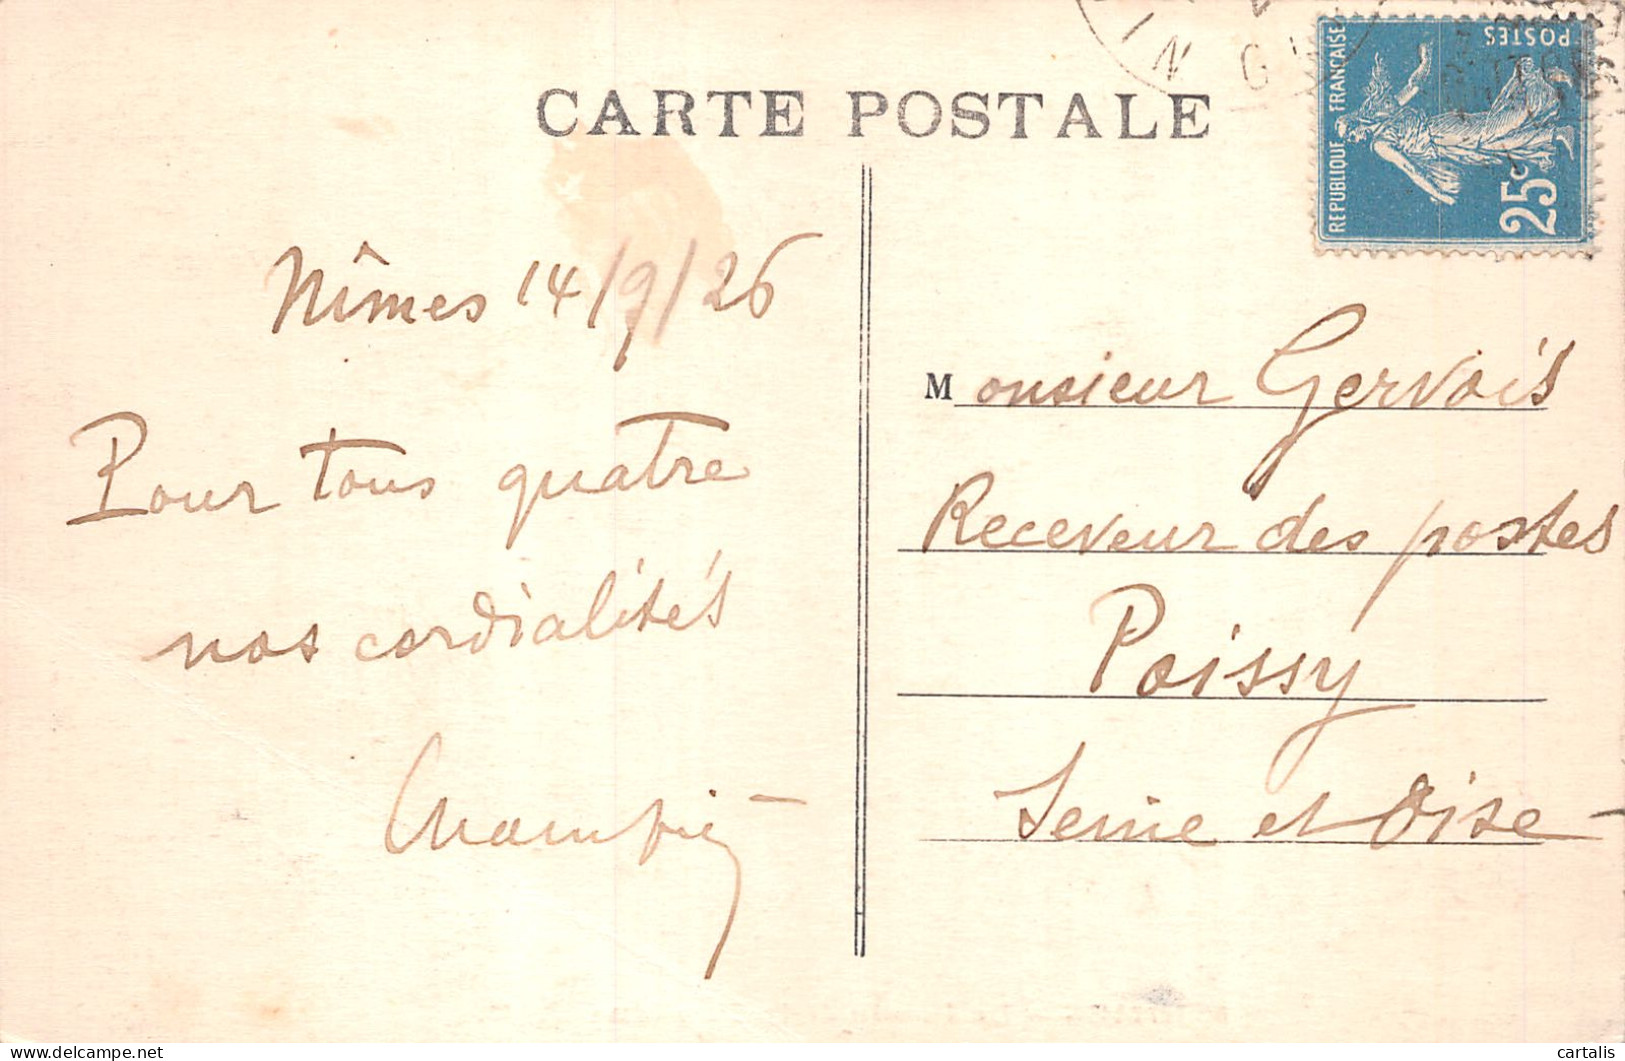 CARTE POSTALE
REPUBLIQUE FRANÇAISE
POSTES
25c
Nîmes 14/9/26
Pour tous quatre
nos cordialités
Monsieur Gervais
Receveur des postes
Poissy
Seine et Oise
cartalis